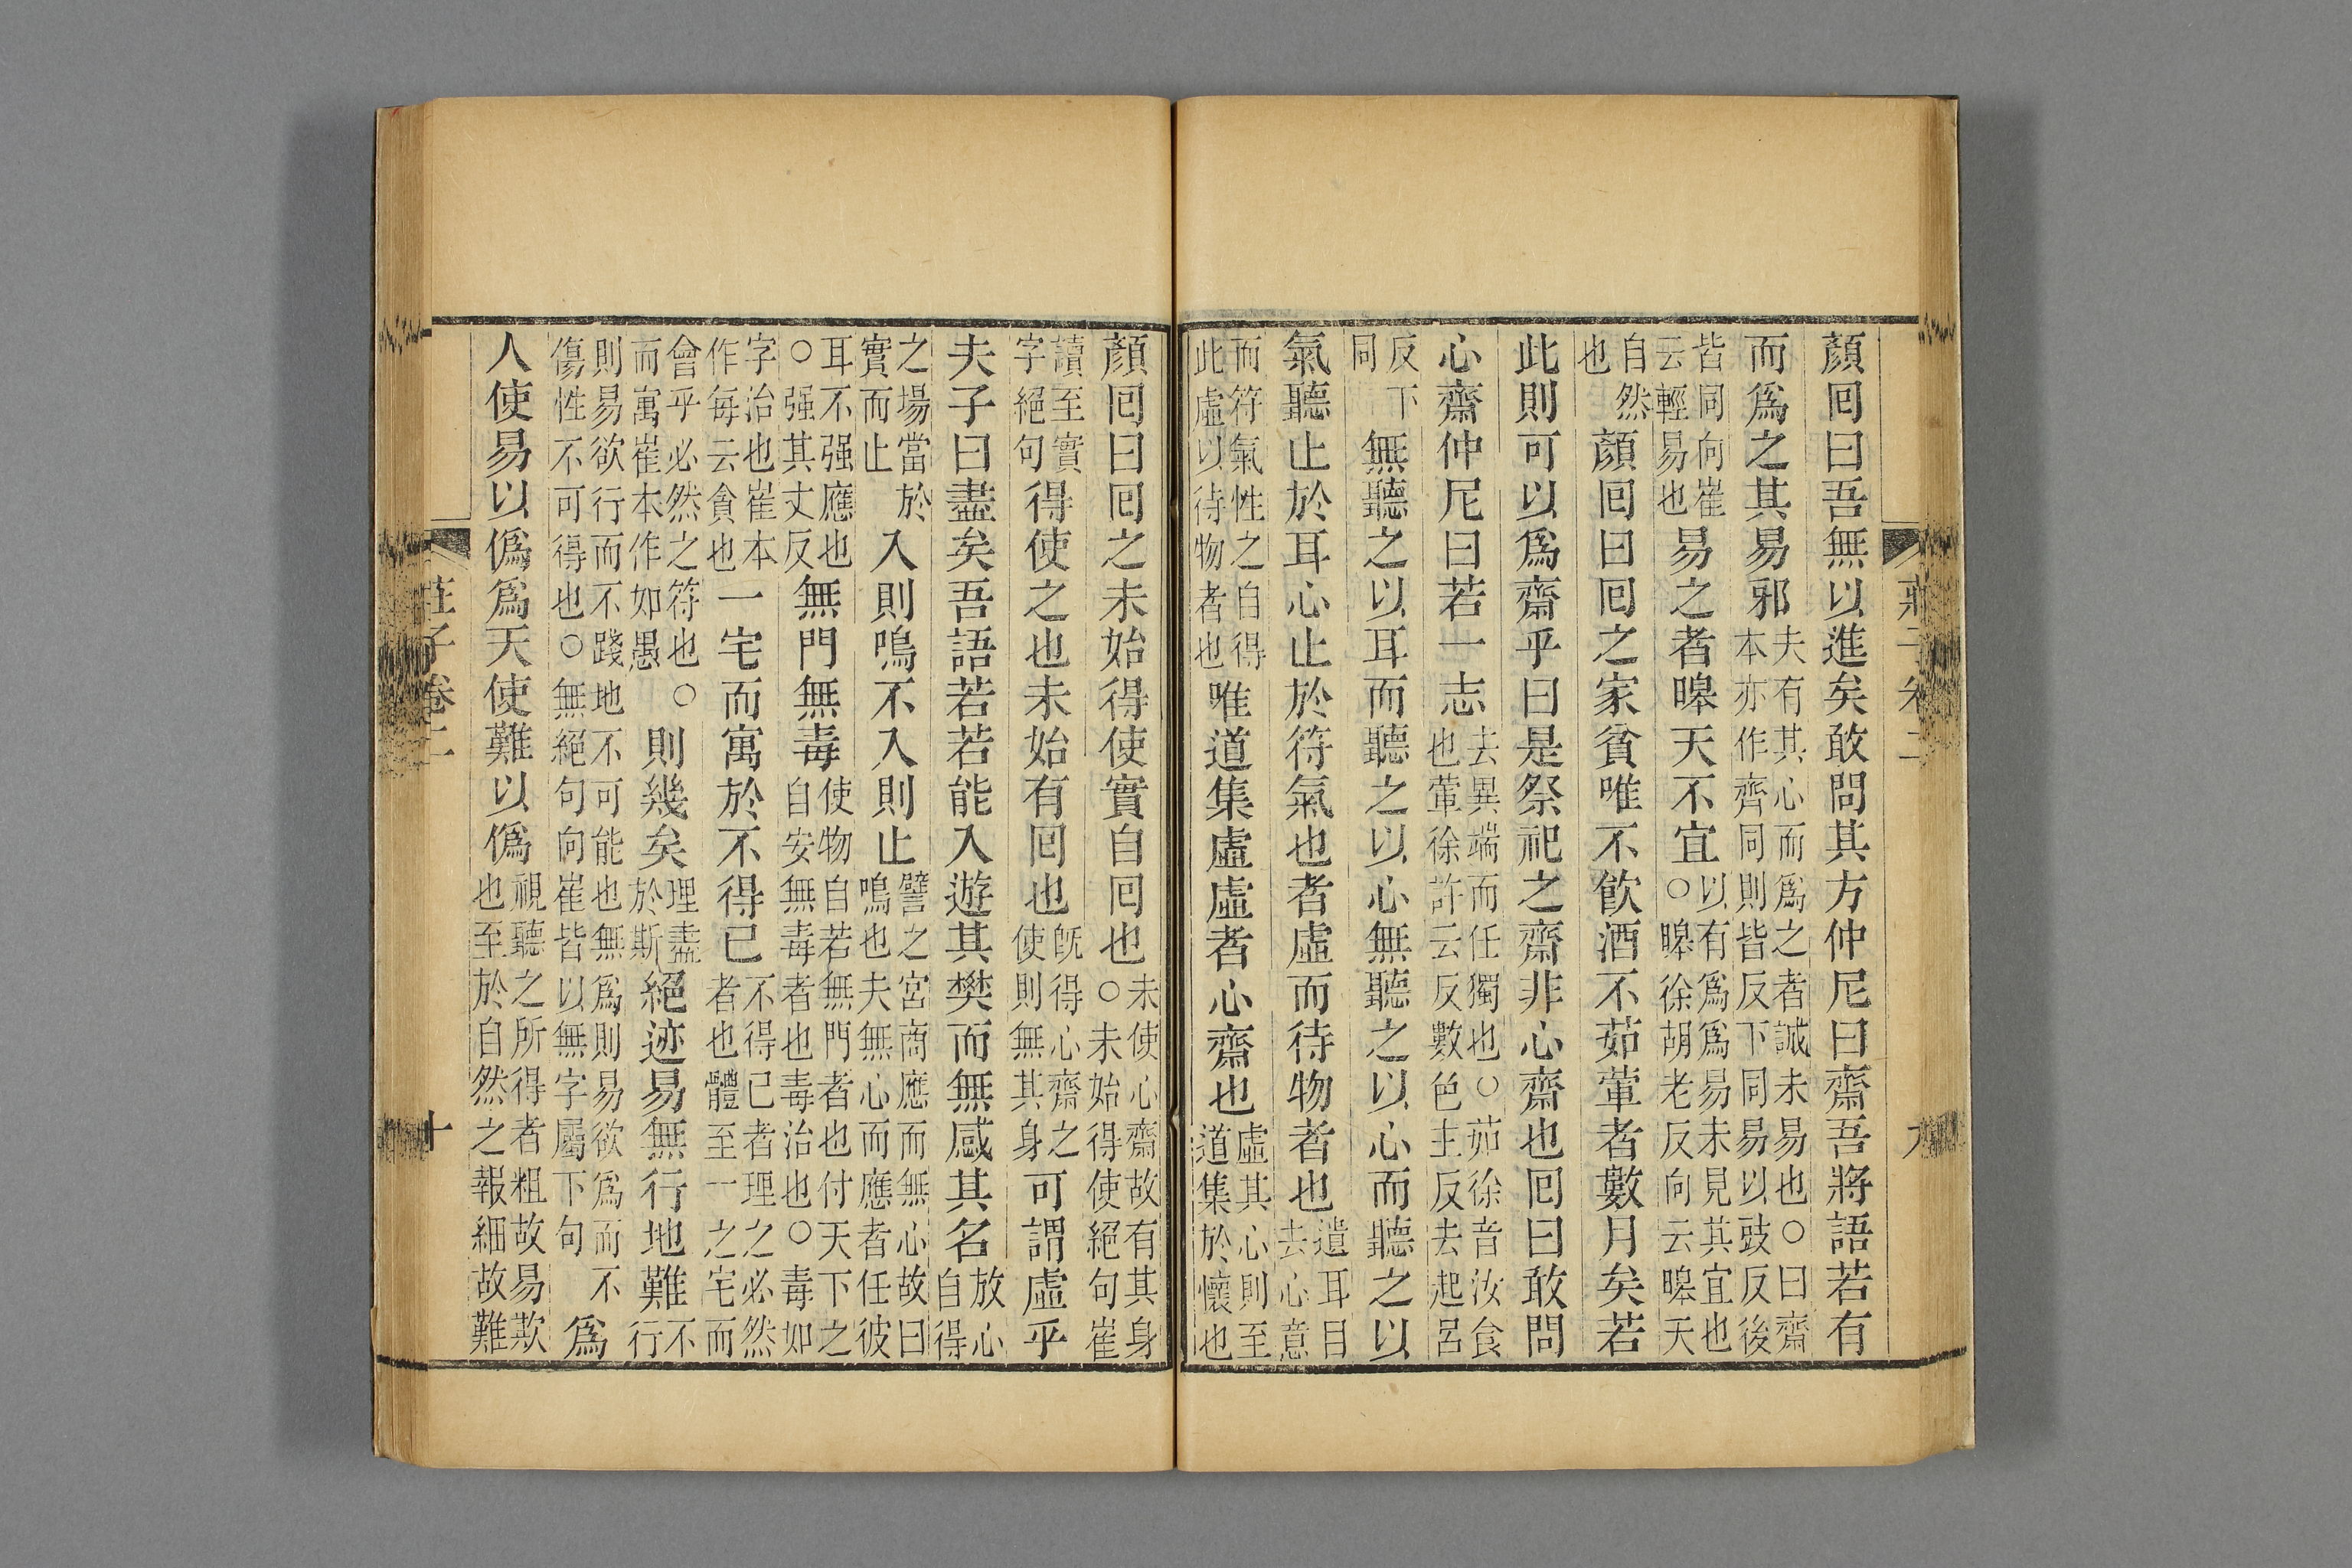 顏囘曰吾無以進矣敢問其方仲尼曰齋吾將語若有
而爲之其易邪夫有其心而爲之者誠未易也○曰齋本亦作齊同則皆反下同易以豉反後
皆同向崔云輕易也易之者暤天不宜以有爲爲易未見其宜也○暤徐胡老反向云暤天
自然也顏囘曰囘之家貧唯不飮酒不茹葷者數月矣若
此則可以爲齋乎曰是祭祀之齋非心齋也囘曰敢問
心齋仲尼曰若一志去異端而任獨也○茹徐音汝食也葷徐許云反數色主反去起呂
反下同無聽之以耳而聽之以心無聽之以心而聽之以
氣聽止於耳心止於符氣也者虛而待物者也遣耳目去心意
而符氣性之自得此虛以待物者也唯道集虛虛者心齋也虛其心則至道集於懷也
顏囘曰囘之未始得使實自囘也未使心齋故有其身○未始得使絕句崔
讀至實字絕句得使之也未始有囘也旣得心齋之使則無其身可謂虛乎
夫子曰盡矣吾語若若能入遊其樊而無感其名放心自得
之場當於實而止入則鳴不入則止譬之宮商應而無心故曰鳴也夫無心而應者任彼
耳不强應也○强其丈反無門無毒使物自若無門者也付天下之自安無毒者也毒治也○毒如
字治也崔本作每云貪也一宅而寓於不得已不得已者理之必然者也體至一之宅而
會乎必然之符也○而寓崔本作如愚則幾矣理盡於斯絕迹易無行地難不行
則易欲行而不踐地不可能也無爲則易欲爲而不傷性不可得也○無絕句向崔皆以無字屬下句爲
人使易以僞爲天使難以僞視聽之所得者粗故易欺也至於自然之報細故難
莊子卷二
十